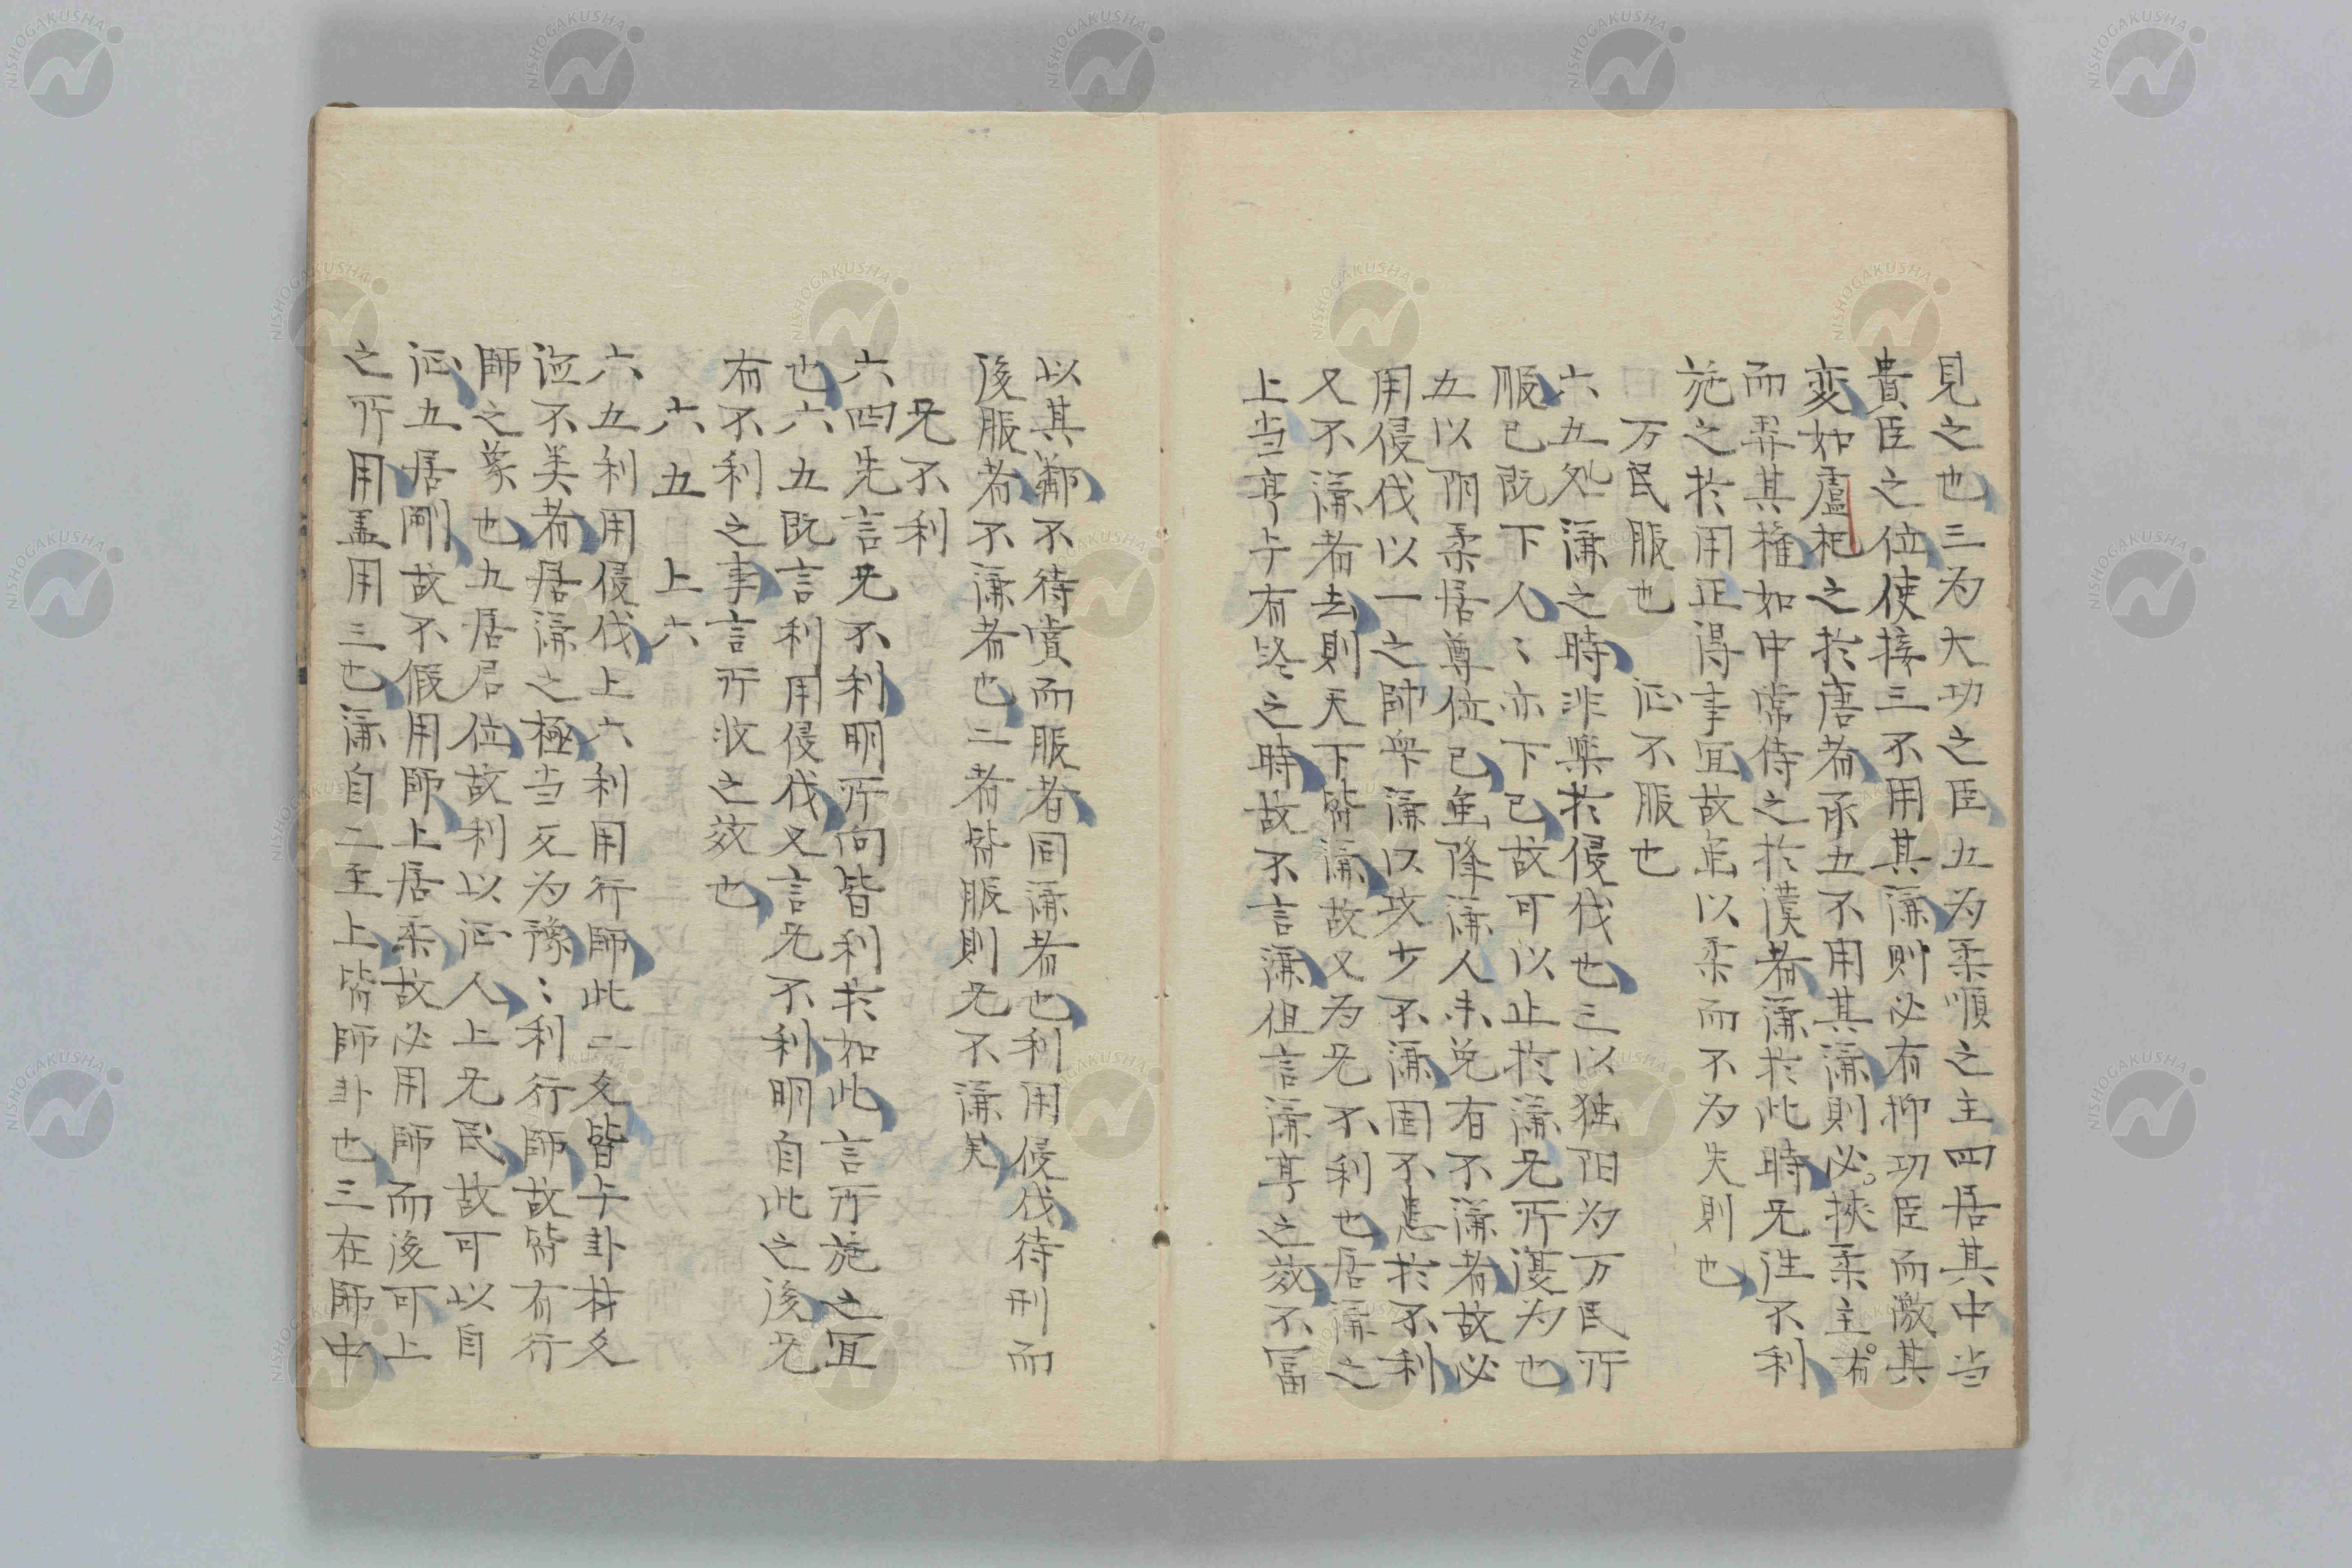 見之也三为大功之臣五为柔順之主四居其中当
貴臣之位使接三不用其謙則必有抑功臣而激其
変如盧杞之於唐者承五不用其謙則必挾柔主
而弄其権如中常侍之於漢者謙於此時无往不利
施之於用正得事冝故虽以柔而不为失則也
万民服也 征不服也
六五処謙之時非楽於侵伐也三以独阳为万民所
服已既下人〻亦下已故可以止於謙无所憂为也
五以阴柔居尊位已虽降謙人未免有不謙者故必
用侵伐以一之帥衆謙以攻少不謙固不恚於不利
又不謙者去則天下皆謙故又为无不利也居謙之
上当亨与有终之時故不言謙但言謙亨之效不冨
以其鄰不待賞而服者固謙者也利用侵伐待刑而
後服者不謙者也二者皆服則无不謙矣
无不利
六四先言无不利明所向皆利於如此言所施之冝
也六五既言利用侵伐又言无不利明自此之後无
有不利之事言所收之效也
六五 上六
六五利用侵伐上六利用行師此二爻皆与卦材爻
位不美者居謙之極当反为豫〻利行師故皆有行
師之象也五居君位故利以征人上无民故可以自
征五居剛故不假用師上居柔故必用師而後可上
之所用盖用三也謙自二至上皆師卦也三在師中
NISHOGAKUSHA